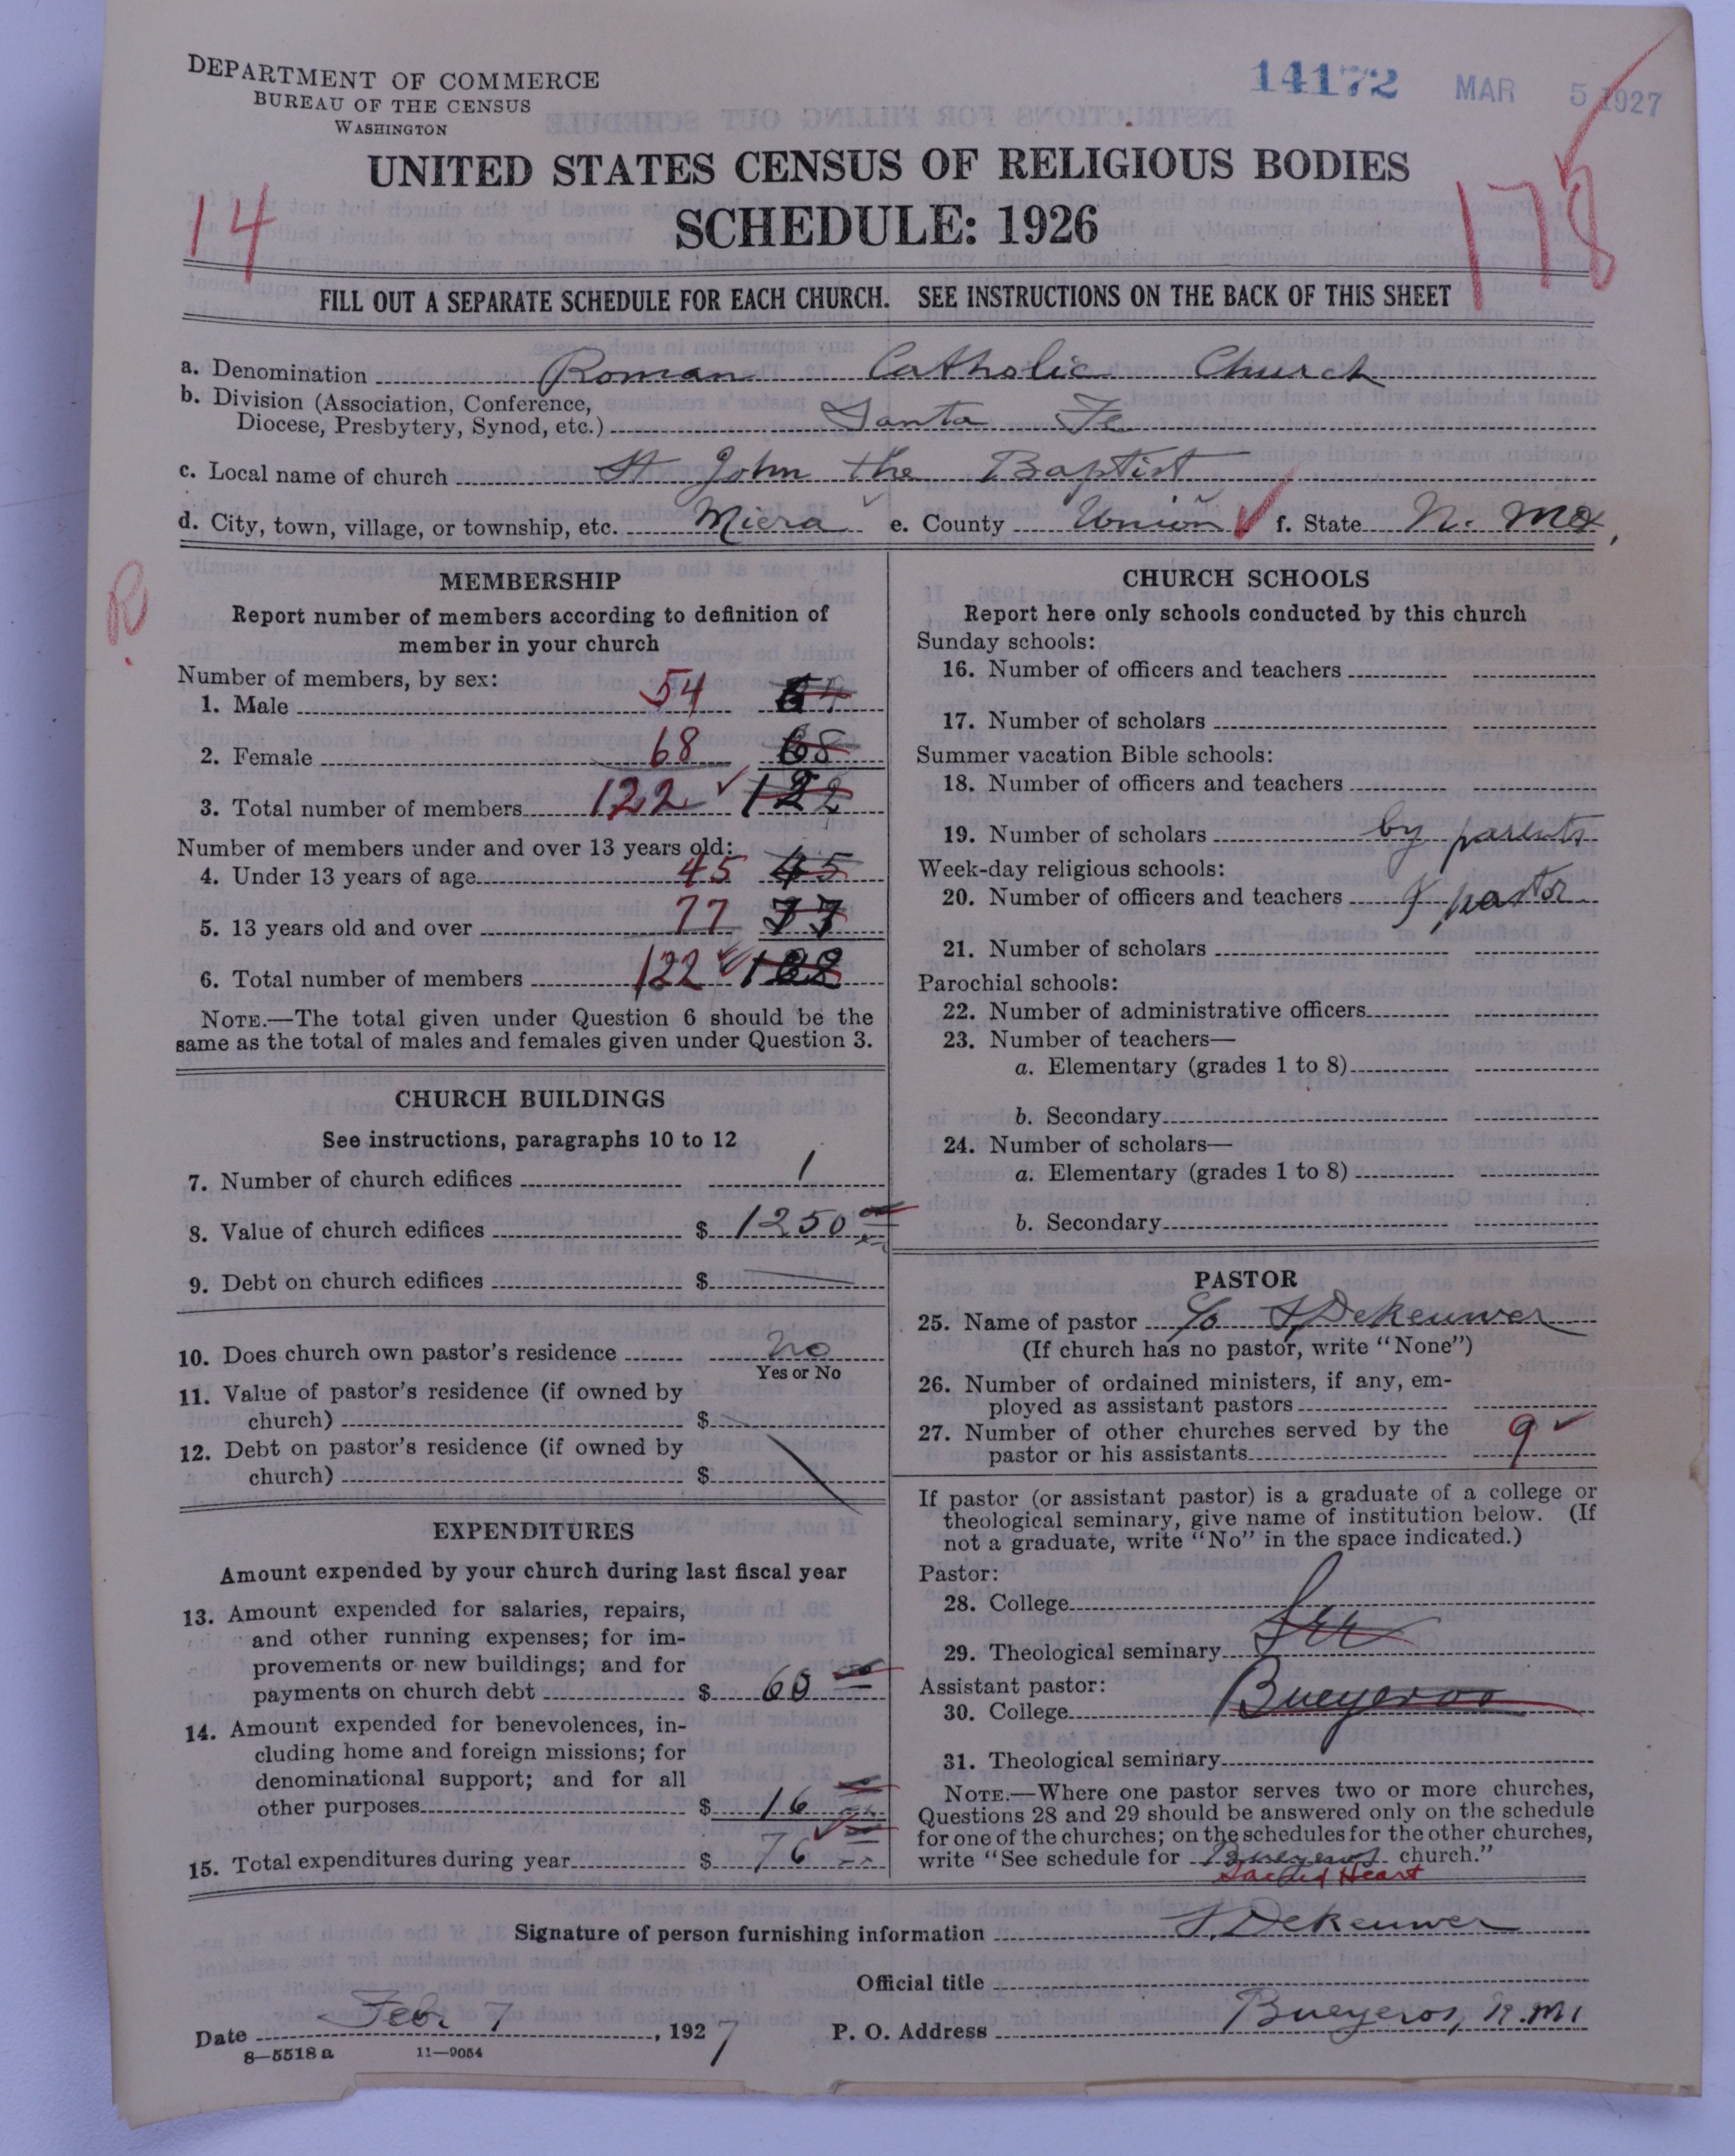 DEPARTMENT OF COMMERCE
BUREAU OF THE CENSUS
WASHINGTON
14172 MAR 5 1927
UNITED STATES CENSUS OF RELIGIOUS BODIES
SCHEDULE: 1926
14
178
FILL OUT A SEPARATE SCHEDULE FOR EACH CHURCH. SEE INSTRUCTIONS ON THE BACK OF THIS SHEET
a. Denomination Roman Catholic Church
b. Division (Association, Conference,
Diocese, Presbytery, Synod, etc.) Santa Fe
c. Local name of church St John the Baptist
d. City, town, village, or township, etc. Miera e. County Union f. State N. Mex,
R.
MEMBERSHIP
Report number of members according to definition of
member in your church
Number of members, by sex:
1. Male 54 54
2. Female 68 68
3. Total number of members 122 122
Number of members under and over 13 years old:
4. Under 13 years of age 45 45
5. 13 years old and over 77 77
6. Total number of members 122 122
NOTE.—The total given under Question 6 should be the
same as the total of males and females given under Question 3.
CHURCH BUILDINGS
See instructions, paragraphs 10 to 12
7. Number of church edifices 1
8. Value of church edifices $ 1250
9. Debt on church edifices $
10. Does church own pastor's residence no
Yes or No
11. Value of pastor's residence (if owned by
church) $
12. Debt on pastor's residence (if owned by
church) $
EXPENDITURES
Amount expended by your church during last fiscal year
13. Amount expended for salaries, repairs,
and other running expenses; for im-
provements or new buildings; and for
payments on church debt $ 60
14. Amount expended for benevolences, in-
cluding home and foreign missions; for
denominational support; and for all
other purposes $ 16
15. Total expenditures during year $ 76
CHURCH SCHOOLS
Report here only schools conducted by this church
Sunday schools:
16. Number of officers and teachers
17. Number of scholars
Summer vacation Bible schools:
18. Number of officers and teachers
19. Number of scholars by parents
Week-day religious schools:
20. Number of officers and teachers & pastor
21. Number of scholars
Parochial schools:
22. Number of administrative officers
23. Number of teachers—
a. Elementary (grades 1 to 8)
b. Secondary
24. Number of scholars—
a. Elementary (grades 1 to 8)
b. Secondary
PASTOR
25. Name of pastor J. Dekeuwer
(If church has no pastor, write "None")
26. Number of ordained ministers, if any, em-
ployed as assistant pastors
27. Number of other churches served by the
pastor or his assistants 9
If pastor (or assistant pastor) is a graduate of a college or
theological seminary, give name of institution below. (If
not a graduate, write "No" in the space indicated.)
Pastor:
28. College
29. Theological seminary See
Assistant pastor:
30. College Bueyeros
31. Theological seminary
NOTE.—Where one pastor serves two or more churches,
Questions 28 and 29 should be answered only on the schedule
for one of the churches; on the schedules for the other churches,
write "See schedule for Bueyeros church."
Sacred Heart
Signature of person furnishing information J. Dekeuwer
Official title
Date Feb. 7, 1927 P. O. Address Bueyeros, N. M
8—5518 a 11—9054